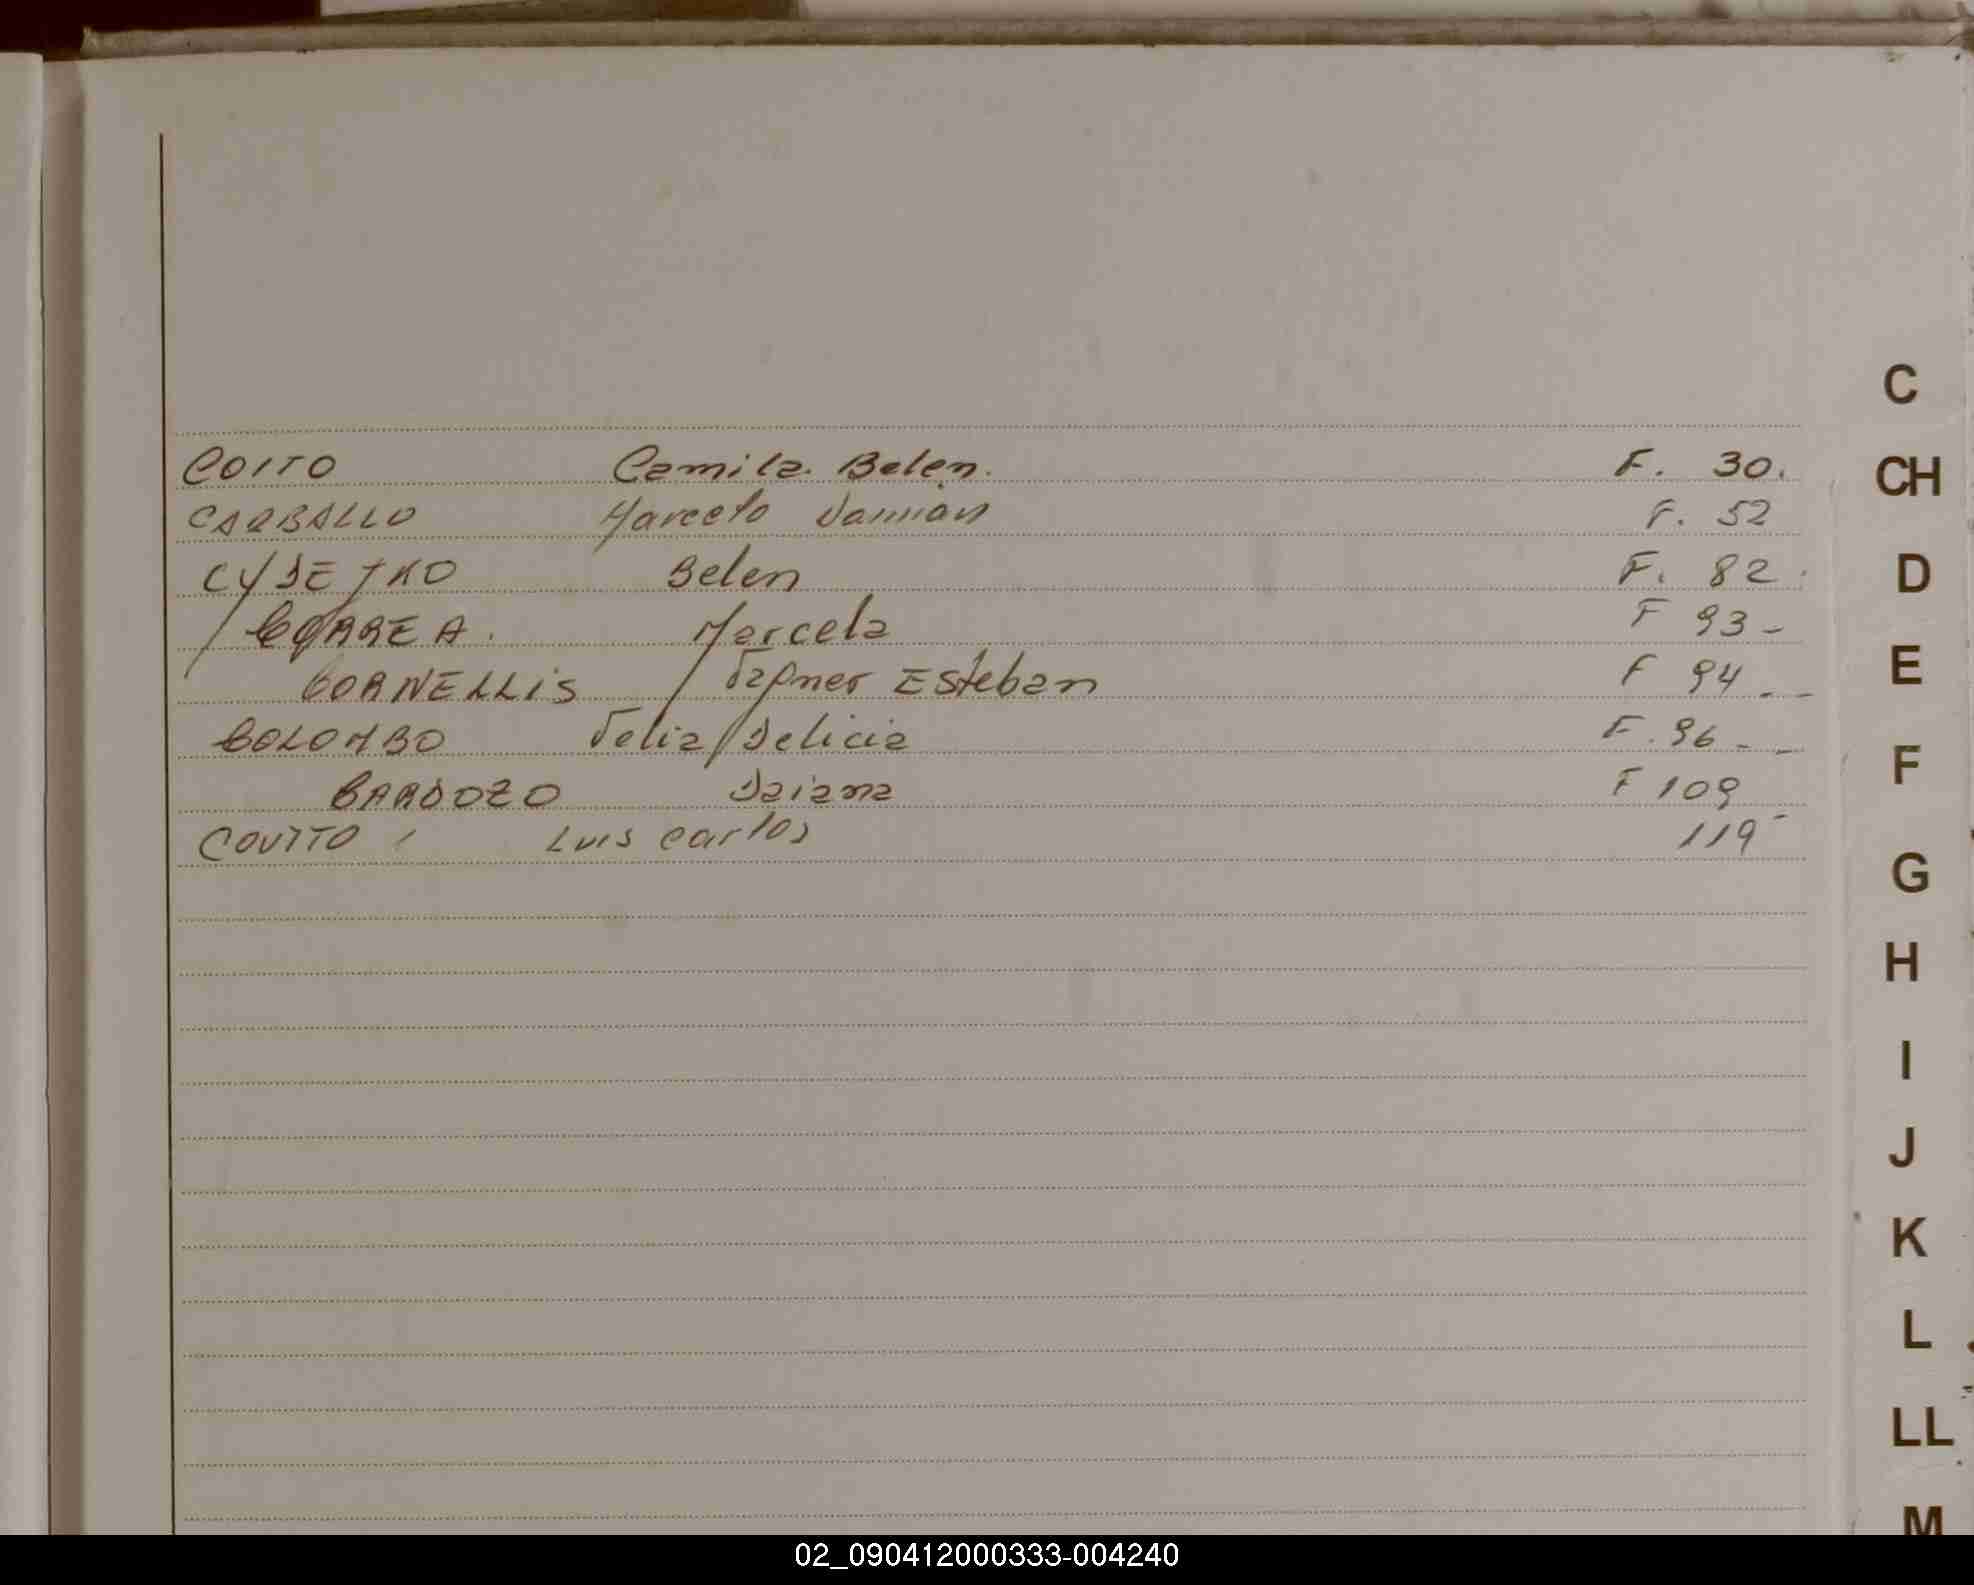 C
COITO Camila. Belen. F. 30.
CH
CARBALLO Marcelo Damian F. 52
CYDEJKO Belen F. 82.
D
CORREA. Marcela F 93-
CORNELLIS Esteban F 94--
E
COLOMBO Delicia F. 96--
F
CARDOZO Daiana F 109
COUTTO, Luis Carlos 119-
G
H
I
J
K
L
LL
M
02_090412000333-004240